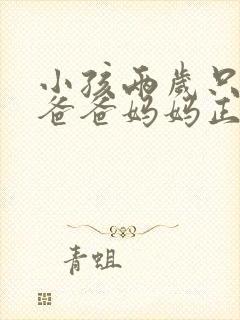 小孩两岁只
爸爸妈妈正
青蛆